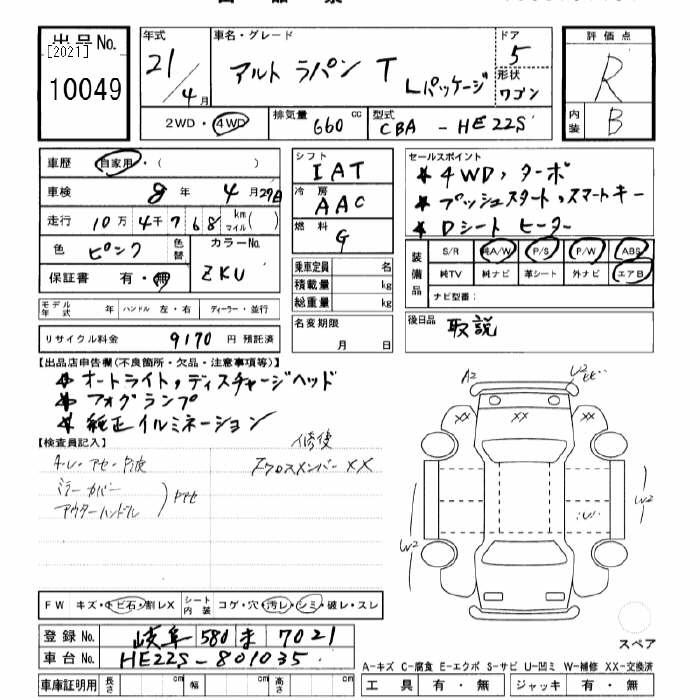 出品No.
[2021]
10049
年式
21/4月
車名・グレード
アルト ラパン T
Lパッケージ
ドア
5
形状
ワゴン
2WD・4WD
排気量 660 cc
型式 CBA-HE22S
評価点
R
内装 B
車歴 自家用・( )
車検 8年 4月 29日
走行 10万 4千 7 6 8 km マイル( )
色 ピンク 色替
カラーNo. ZKU
保証書 有・無
モデル年式 年 ハンドル 左・右 ディーラー・並行
リサイクル料金 9170 円 預託済
シフト IAT
冷房 AAC
燃料 G
乗車定員 名
積載量 kg
総重量 kg
名変期限
月 日
セールスポイント
★ 4WD、ターボ
★ プッシュスタート、スマートキー
★ Dシート ヒーター
装備品
S/R 純A/W P/S P/W ABS
純TV 純ナビ 革シート 外ナビ エアB
ナビ型番:
後日品 取説
【出品店申告欄(不良箇所・欠品・注意事項等)】
★ オートライト、ディスチャージヘッド
★ フォグランプ
★ 純正イルミネーション
【検査員記入】
修後
FクロスメンバーXX
ミラーカバー
アウターハンドル
A2
U2
XX XX XX
W2
W2
FW キズ・トビ石・割レX シート内装 コゲ・穴・汚レ・シミ・破レ・スレ
登録No. 岐阜 580 ま 7021
車台No. HE22S-801035
車庫証明用 長さ cm 幅 cm 高さ cm
スペア
A-キズ C-腐食 E-エクボ S-サビ U-凹ミ W-補修 XX-交換済
工具 有・無 ジャッキ 有・無